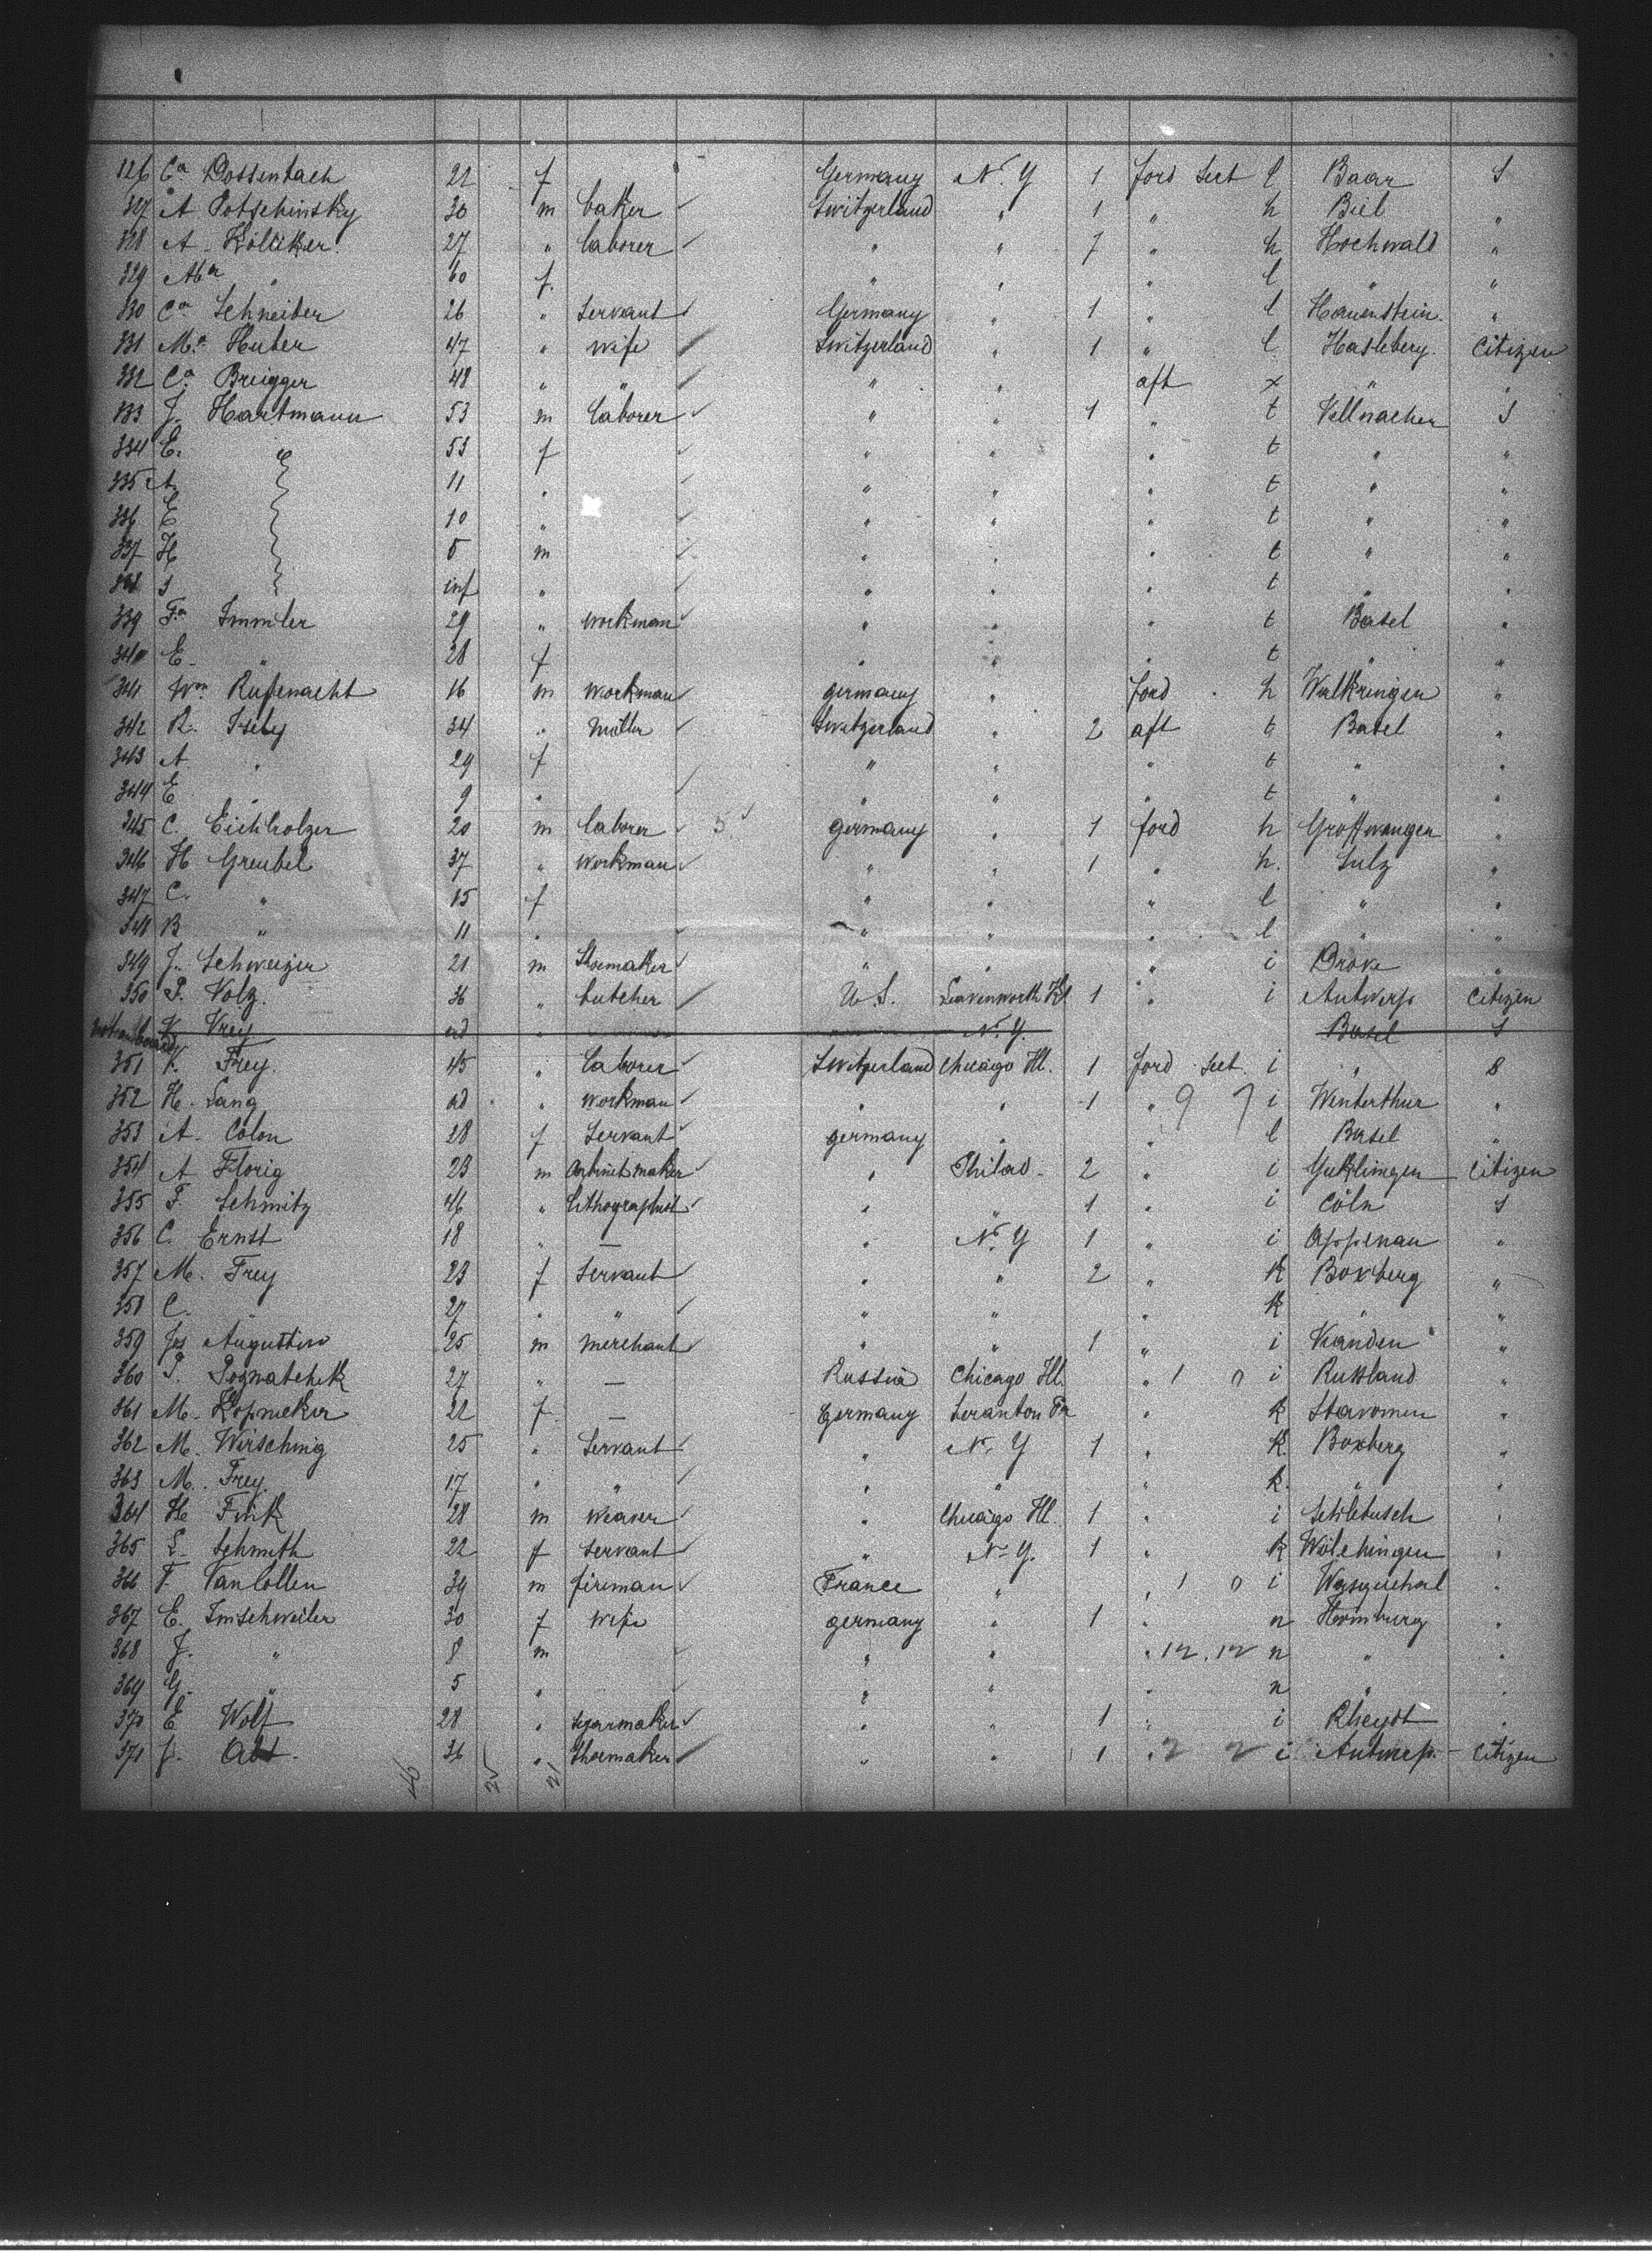 326 Ca Dossenbach 22 f Germany N. Y 1 ford Sect l Baar S
327 A Potschinsky 30 m baker Switzerland " 1 " h Biel "
328 A. Kölliker 27 " laborer " " 7 " h Hochwald "
329 Aba " 60 f. " " " l " "
330 Ca Schneider 26 " Servant Germany " 1 " l Hauenstein "
331 Ma Huber 47 " wife Switzerland " 1 " l Hasleberg. Citizen
332 Ca Brügger 48 " " " " aft x " "
333 J. Hartmann 53 m laborer " " 1 " t Villnachen S
334 E. " 53 f " " " t " "
335 A. 11 " " " " t " "
336 E 10 " " " " t " "
337 H 5 m " " " t " "
338 S inf " " " " t " "
339 Fa Immler 29 " workman " " " t Basel "
340 E. " 28 f " " " t " "
341 Wm Rufenacht 16 m workman germany " ford h Walkringen "
342 R. Isely 34 " Miller Switzerland " 2 aft t Basel "
343 A. " 29 f " " " t " "
344 E " 9 " " " " t " "
345 C. Eichholzer 20 m laborer 5 germany " 1 ford h Grosswangen "
346 H Greubel 37 " workman " " 1 " h. Sulz "
347 C. " 15 f " " " l " "
348 B " 11 " " " " l " "
349 J. Schweizer 21 m Shoemaker " " " i "
350 P. Volz. 36 " butcher U.S. Leavenworth Ks 1 " i Antwerp Citizen
not on board K. Vrey ad " N. Y. Basel S
351 K. Frey. 45 " laborer Switzerland Chicago Ill. 1 ford Sect. i " S
352 H. Lang ad " workman " " 1 " 9 7 i Winterthur "
353 A. Colon 28 f Servant germany " " l Basel "
354 A Florig 23 m Cabinetmaker " Philad. 2 " i Citizen
355 F. Schmitz 46 " Lithographist " " 1 " i Cöln S
356 C. Ernst 18 " — " N. Y 1 " i Appenau "
357 M. Frey 23 f Servant " " 2 " k Boxberg "
358 C. " 27 " " " " " k " "
359 Jos Augustin 25 m merchant " " 1 " i Kanden "
360 P. 27 " — Russia Chicago Ill. " 1 0 i Russland "
361 M. 22 f. — Germany Scranton Pa " k "
362 M. Wirsching 25 " Servant " N. Y 1 " k. Boxberg "
363 M. Frey. 17 " " " " " k. " "
364 H Fink 28 m Weaver " Chicago Ill. 1 " i Schlebusch "
365 L. Schmith 22 f Servant " N. Y. 1 " k Wölchingen "
366 F. VanCollen 39 m fireman France " " 1 0 i Wasquehal "
367 E. Imschweiler 30 f wife germany " 1 " n Homburg "
368 J. " 8 m " " " 12. 12 n " "
369 G. " 5 " " " " n " "
370 E Wolf 28 " Segarmaker " " 1 " i Rheydt "
371 J. Abt. 36 " Shoemaker " " 1 " 2 2 i Antwerp. Citizen